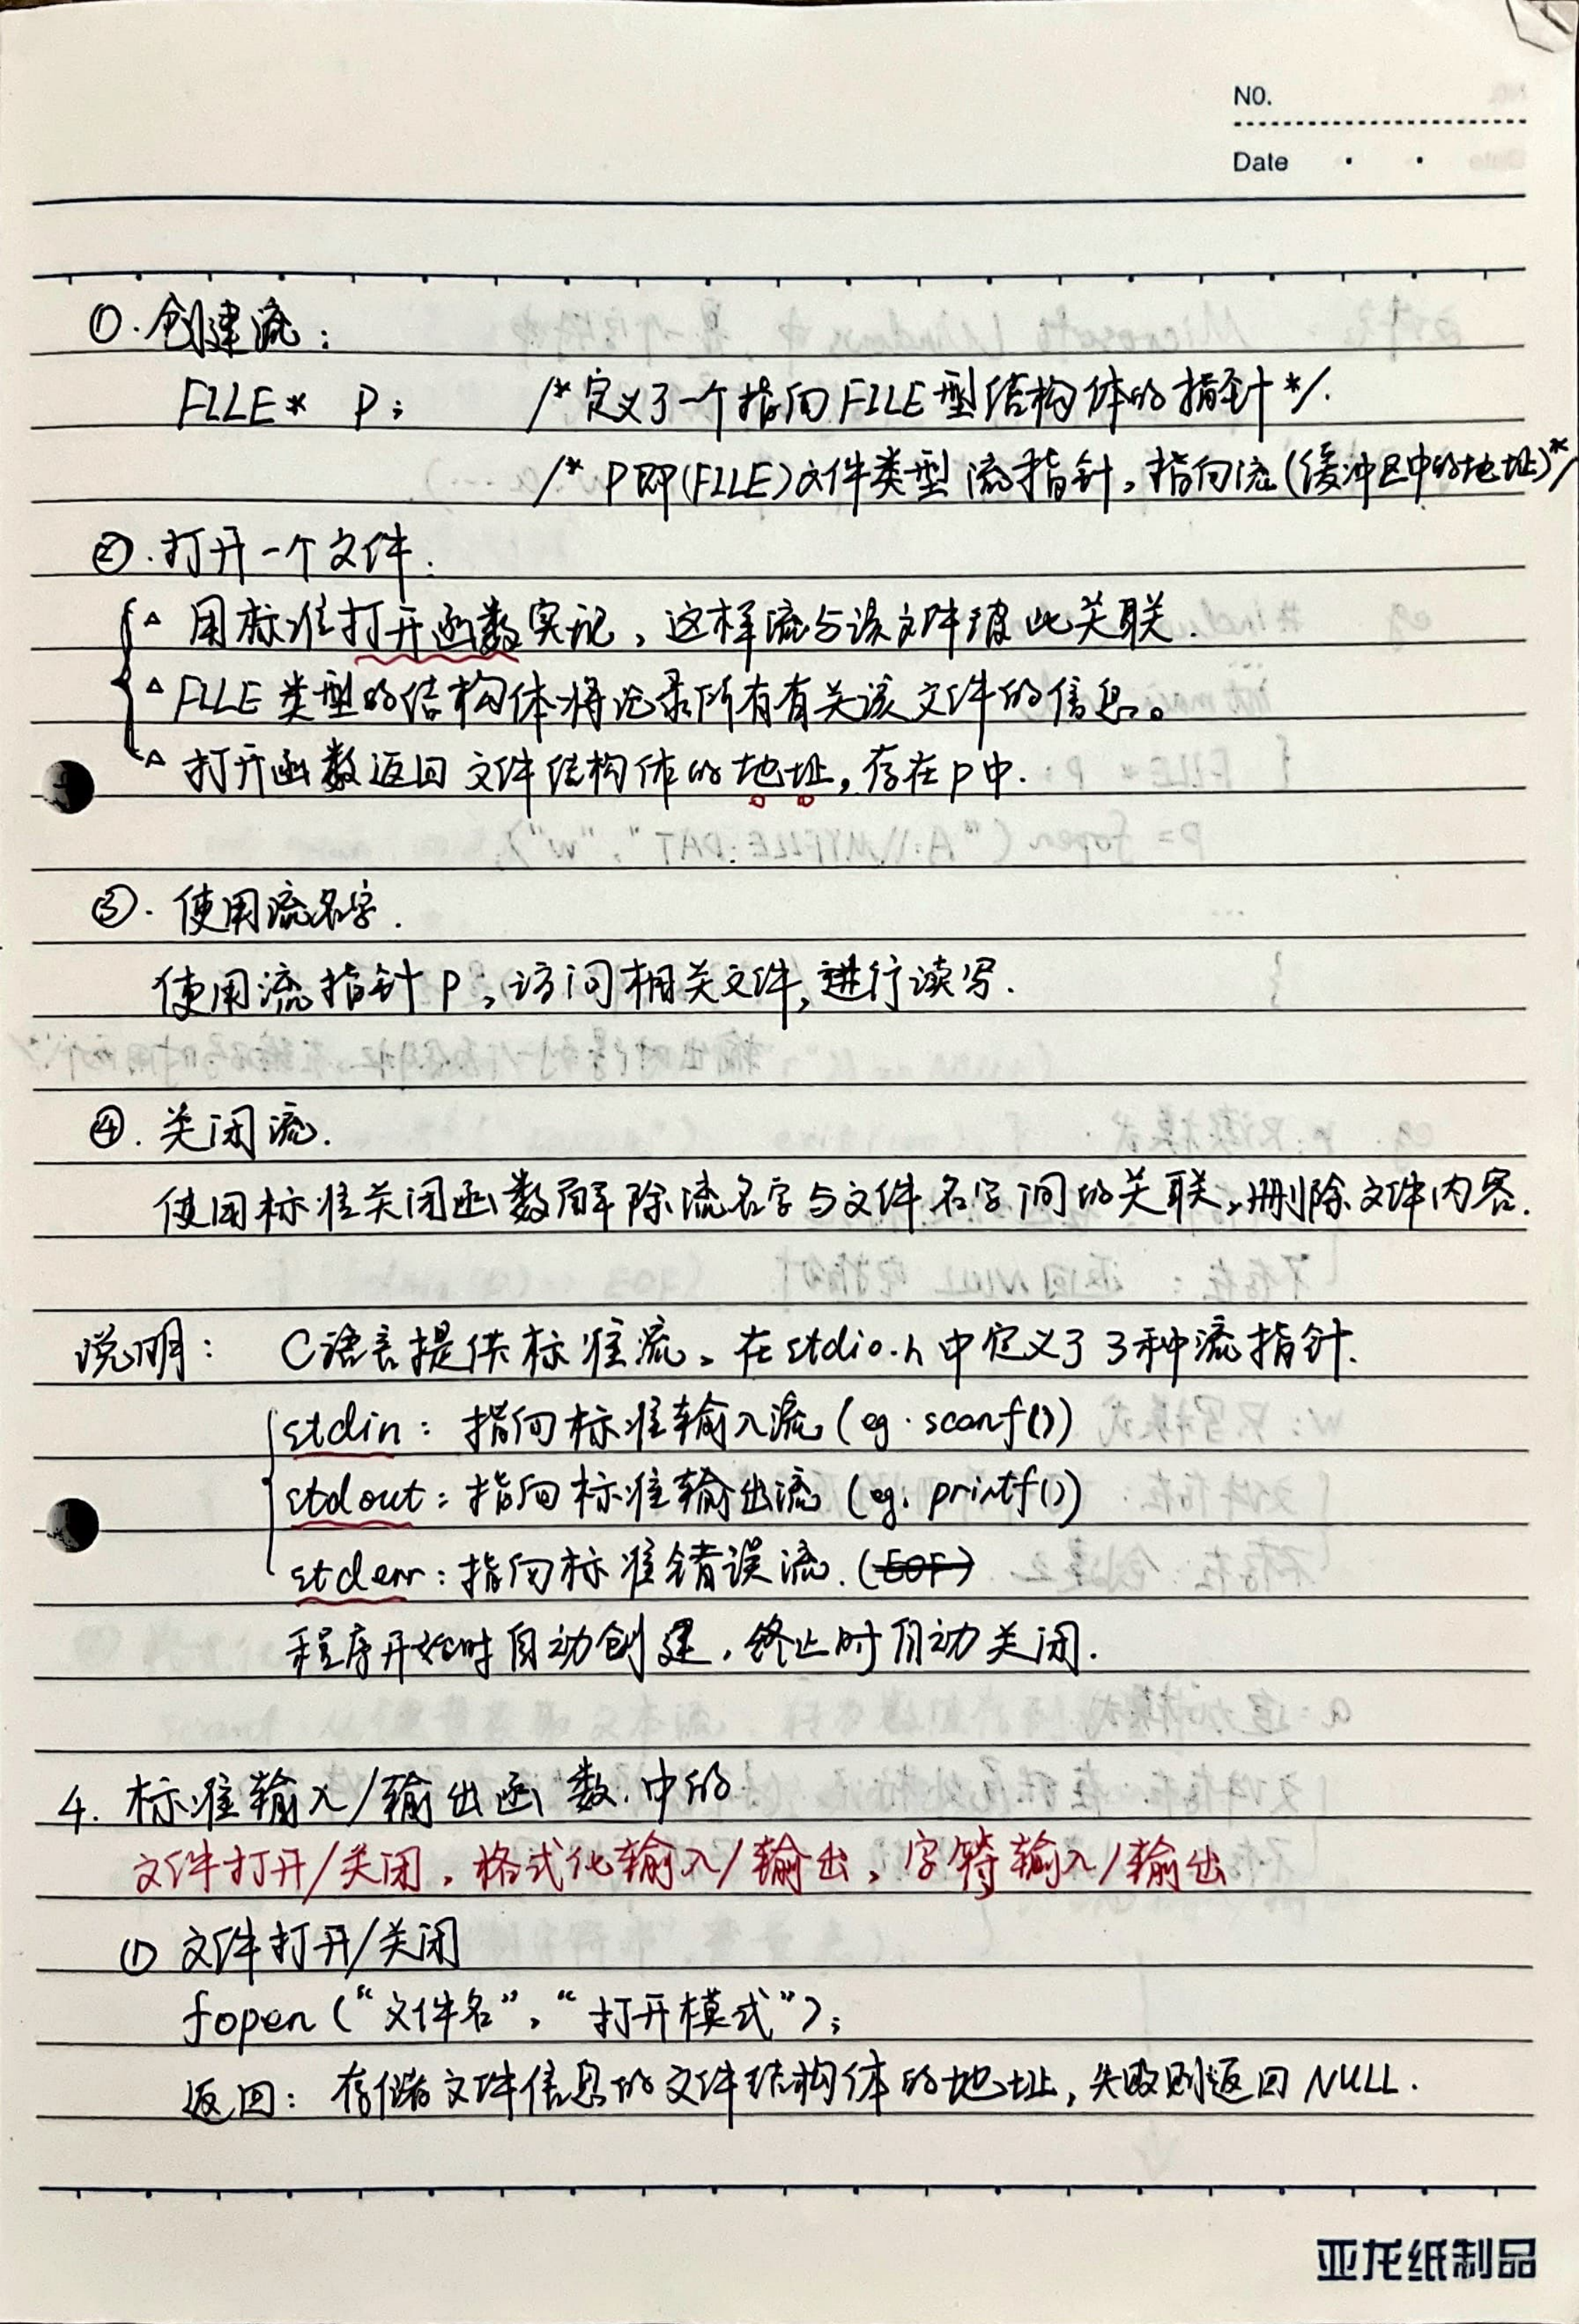 NO.
Date
①.创建流：
FILE* P; /*定义了一个指向FILE型结构体的指针*/.
/* P即(FILE)文件类型 流指针，指向流(缓冲区中的地址)*/
②.打开一个文件.
△ 用标准打开函数实现，这样流与该文件彼此关联.
△ FILE类型的结构体将记录所有有关该文件的信息。
△ 打开函数返回文件结构体的地址，存在p中.
③. 使用流名字.
使用流指针P，访问相关文件，进行读写.
④. 关闭流.
使用标准关闭函数解除流名字与文件名字间的关联，删除文件内容.
说明： C语言提供标准流。在stdio.h中定义了3种流指针.
stdin：指向标准输入流(eg. scanf())
stdout：指向标准输出流(eg. printf())
stderr：指向标准错误流.(EOF)
程序开始时自动创建，终止时自动关闭.
4. 标准输入/输出函数.中的
文件打开/关闭，格式化输入/输出，字符输入/输出
① 文件打开/关闭
fopen(“文件名”，“打开模式”);
返回：存储文件信息的文件结构体的地址，失败则返回NULL.
亚龙纸制品